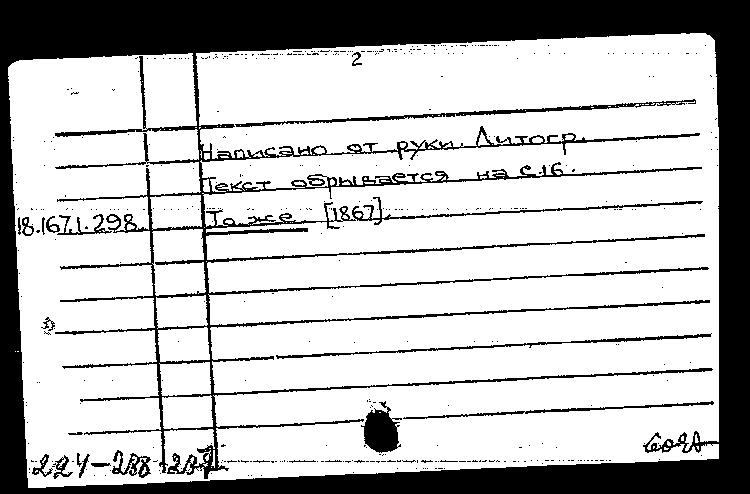 2
Написано от руки. Литогр.
Текст обрывается на с.16.
18.167.1.298 То же [1867].
224-288